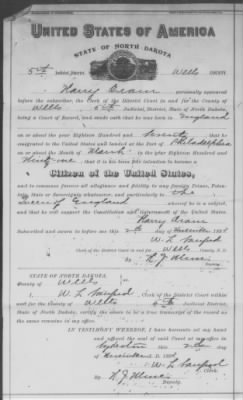 UNITED STATES OF AMERICA
STATE OF NORTH DAKOTA
5th Judicial District, Wells COUNTY.
Harry personally appeared
before the subscriber, the Clerk of the District Court in and for the County
of Wells 5th Judicial District, State of North Dakota,
being a Court of Record, and made oath that he was born in England
on or about the year Eighteen Hundred and Seventy that he
emigrated to the United States and landed at the Port of Philadelphia
on or about the Month of March in the year Eighteen Hundred and
Ninety one that it is bona fide his intention to become a
Citizen of the United States,
and to renounce forever all allegiance and fidelity to any Foreign Prince, Potentate,
State or Sovereignty whatever, and particularly to the
Queen of England whereof he is a subject,
and that he will support the Constitution and Government of the United States.
Harry
Subscribed and sworn to before me this day of
W. L.
Clerk of the District Court in and for Wells County, N. D.
By Deputy
STATE OF NORTH DAKOTA,
County of Wells
I, W. L. Clerk of the District Court within
and for the County of Wells 5th Judicial District,
State of North Dakota, certify the above to be a true transcript of the record as
the same remains in my office.
IN TESTIMONY WHEREOF, I have hereunto set my hand
and affixed the seal of said Court at my office in
Sykeston this day
of
W. L. Clerk
By
Deputy.